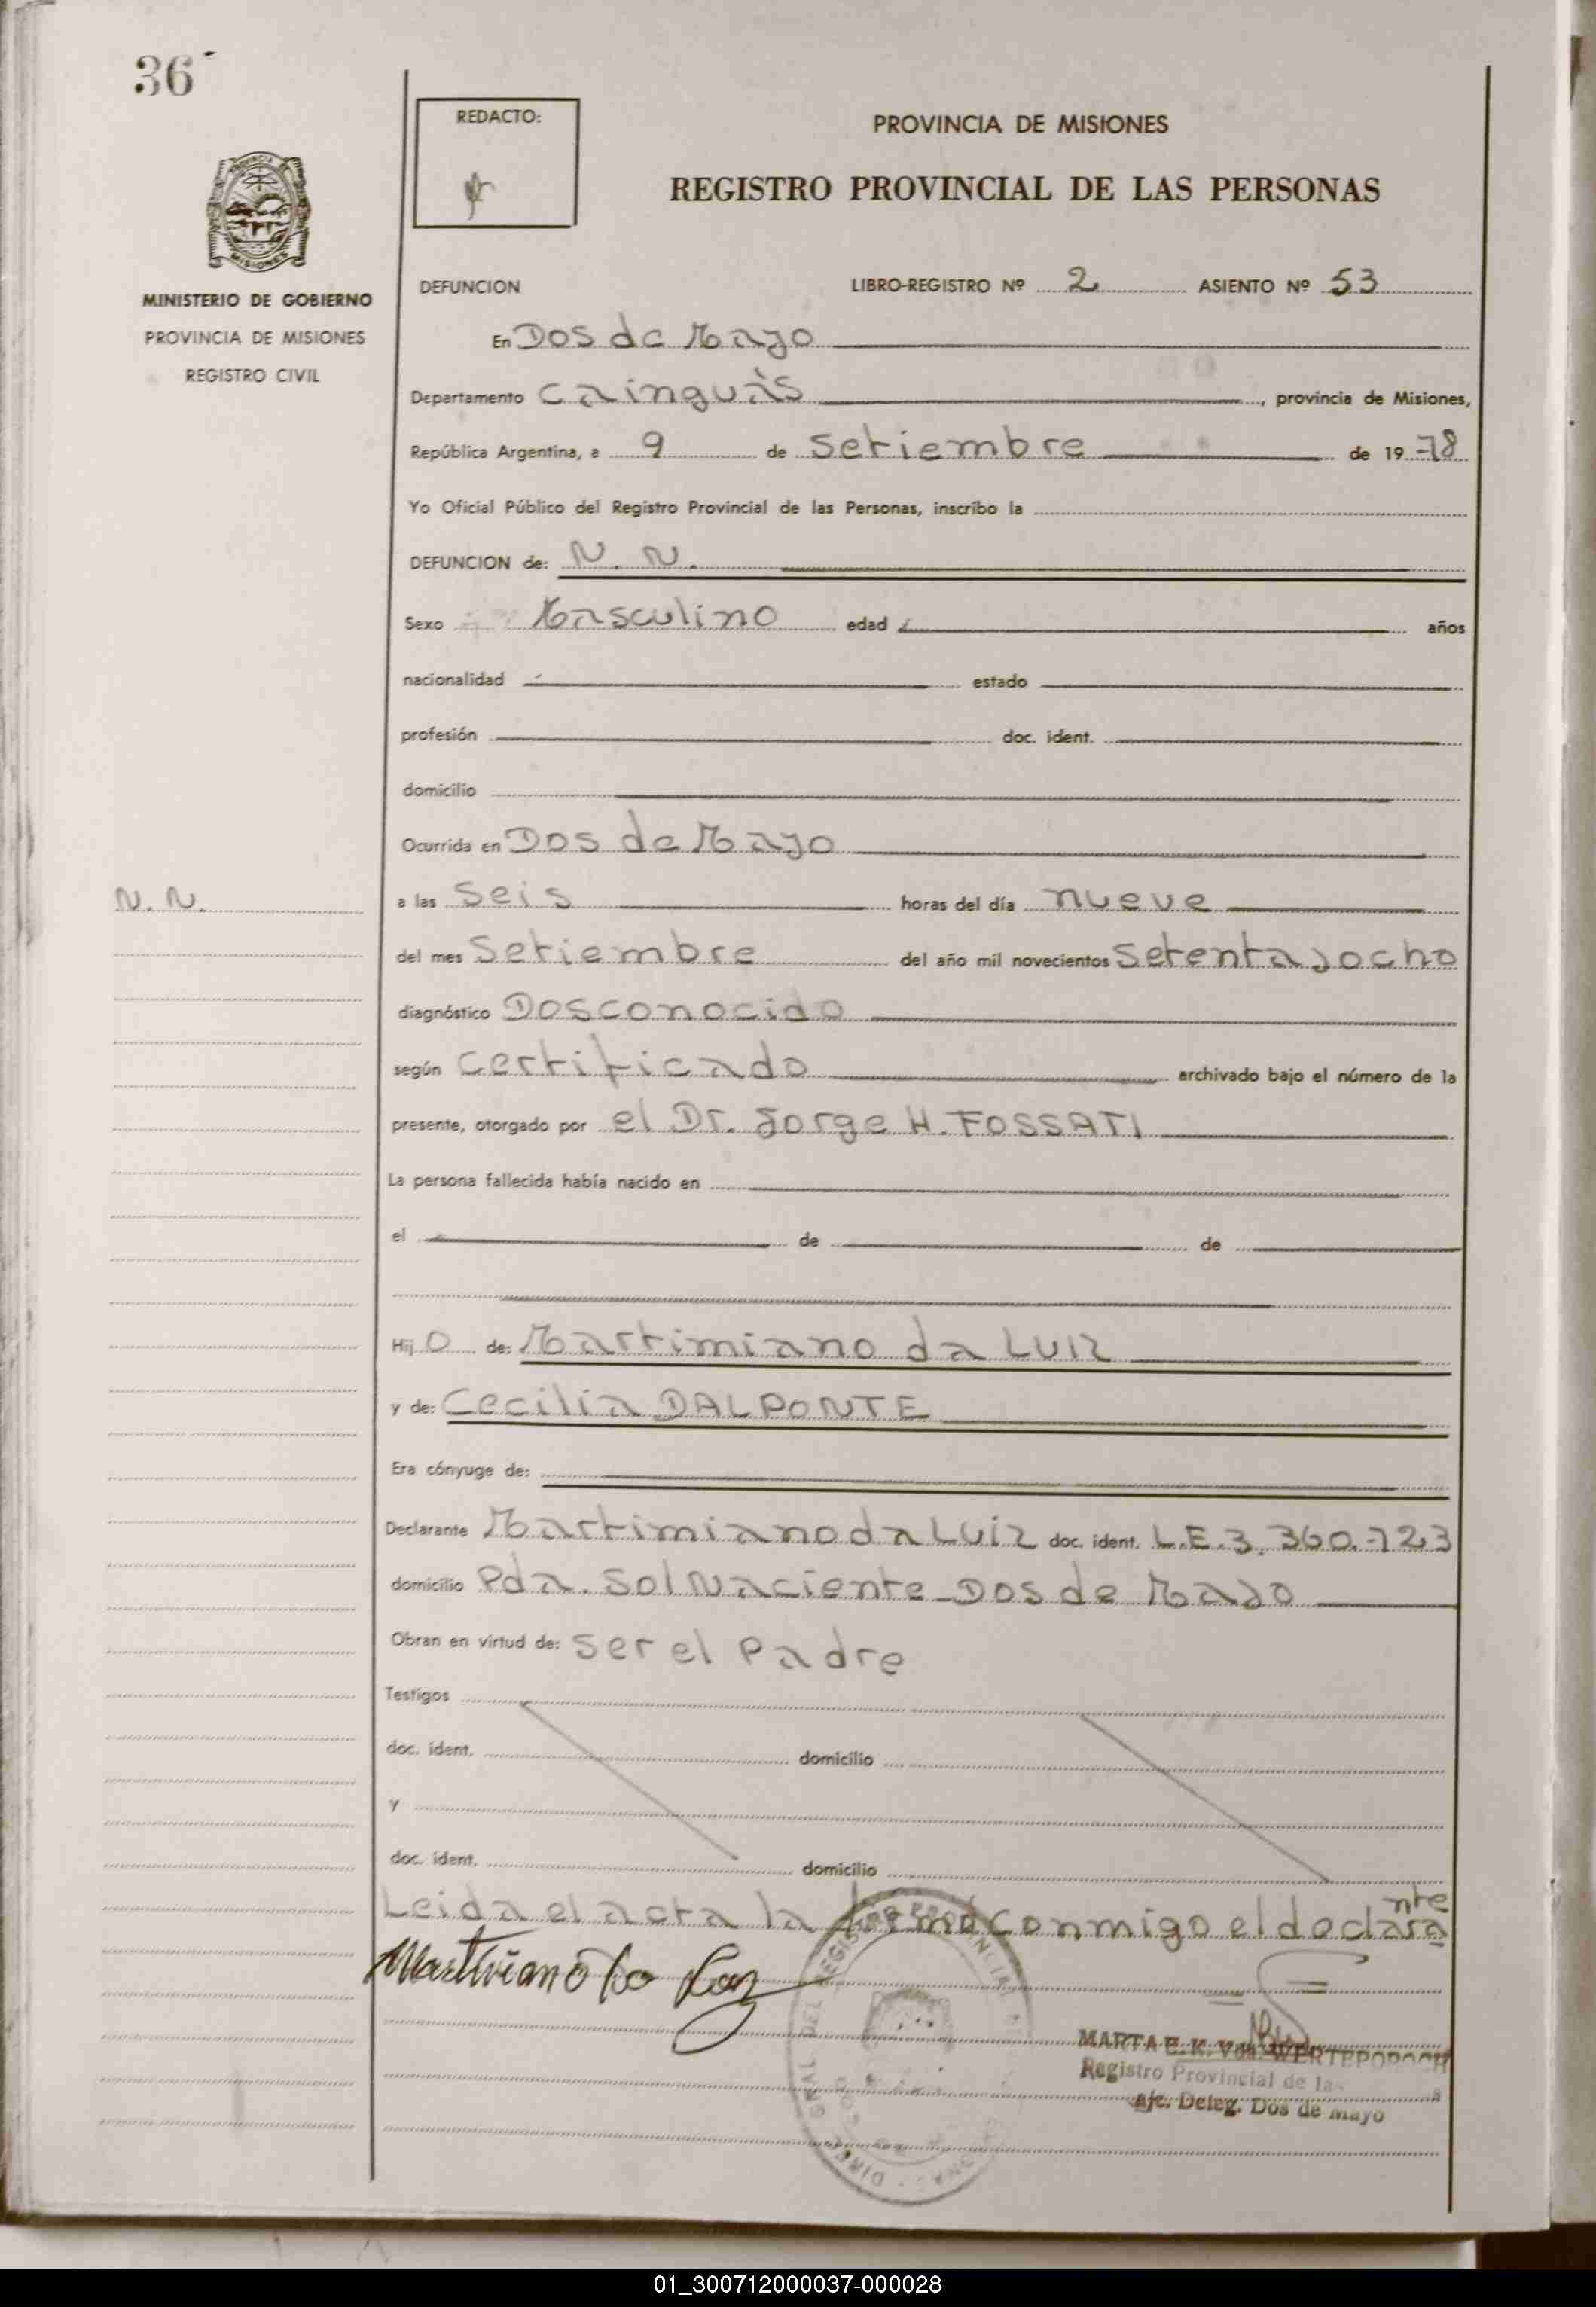 36
REDACTO:
PROVINCIA DE MISIONES
REGISTRO PROVINCIAL DE LAS PERSONAS
MINISTERIO DE GOBIERNO
PROVINCIA DE MISIONES
REGISTRO CIVIL
DEFUNCION LIBRO-REGISTRO Nº 2 ASIENTO Nº 53
En Dos de Mayo
Departamento Cainguás, provincia de Misiones,
República Argentina, a 9 de Setiembre de 19 78
Yo Oficial Público del Registro Provincial de las Personas, inscribo la
DEFUNCION de: N. N.
Sexo Masculino edad años
nacionalidad estado
profesión doc. ident.
domicilio
Ocurrida en Dos de Mayo
N. N.
a las Seis horas del día nueve
del mes Setiembre del año mil novecientos Setenta y ocho
diagnóstico Desconocido
según Certificado archivado bajo el número de la
presente, otorgado por el Dr. Jorge H. FOSSATI
La persona fallecida había nacido en
el de de
Hij o de: Martimiano da LUIZ
y de: Cecilia DALPONTE
Era cónyuge de:
Declarante Martimiano da Luiz doc. ident. L.E. 3.360.723
domicilio Pda. Sol Naciente - Dos de Mayo
Obran en virtud de: ser el Padre
Testigos
doc. ident. domicilio
y
doc. ident. domicilio
Leida el acta la firmó conmigo el declarante
MARTA E. K. Vda. WERTEPOROCH
Registro Provincial de las
Deleg. Dos de Mayo
01_300712000037-000028